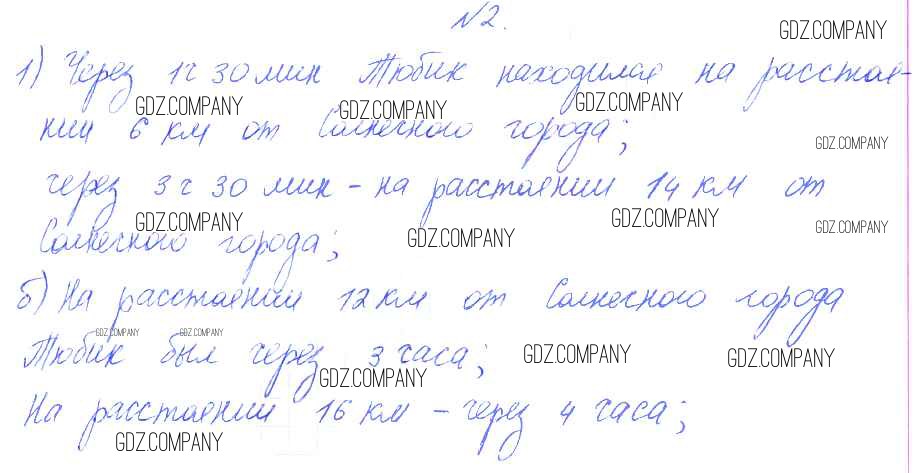 №2.
GDZ.COMPANY
1) Через 1ч 30 мин Тюбик находился на расстоя-
GDZ.COMPANY GDZ.COMPANY GDZ.COMPANY
нии 6 км от Солнечного города;
GDZ.COMPANY
через 3ч 30 мин – на расстоянии 14 км от
GDZ.COMPANY GDZ.COMPANY GDZ.COMPANY
Солнечного города;
GDZ.COMPANY
б) На расстоянии 12 км от Солнечного города
GDZ.COMPANY GDZ.COMPANY
Тюбик был через 3 часа;
GDZ.COMPANY GDZ.COMPANY
GDZ.COMPANY
На расстоянии 16 км – через 4 часа;
GDZ.COMPANY